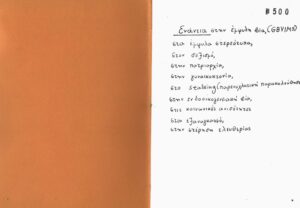 #500
Ενάντια στην έμφυλη βία, (GBV/IPV)
στα έμφυλα στερεότυπα,
στον σεξισμό,
στην πατριαρχία,
στην γυναικοκτονία,
στο stalking (παρενοχλητική παρακολούθηση)
στην ενδοοικογενειακή βία,
στις κοινωνικές ανισότητες
στον εξαναγκασμό,
στην στέρηση ελευθερίας